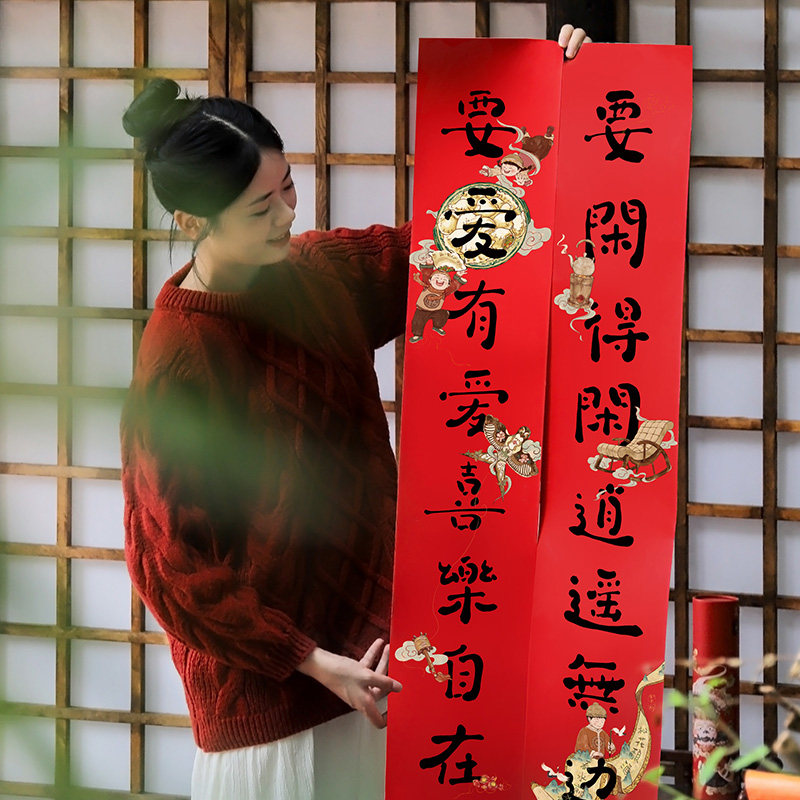 要閑得閑逍遥無边
要愛有愛喜樂自在